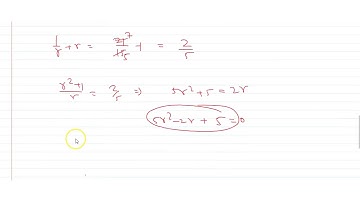 1/r + r = 21 7/15 5 - 1 = 2/5
r²+1/r = 2/5 ⇒ 5r²+5 = 2r
5r²-2r + 5 = 0